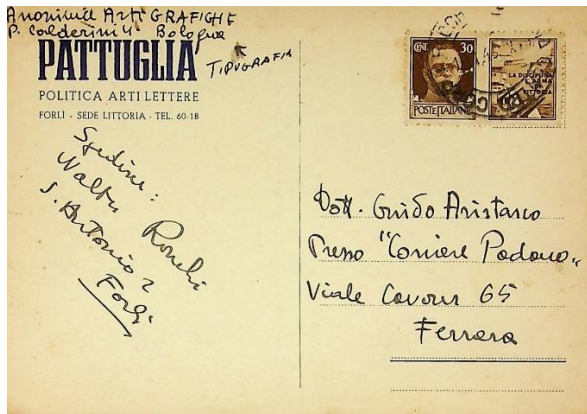 Anonima Arti GRAFIGHE
P. Calderini 4 Bologna
TIPOGRAFIA
PATTUGLIA
POLITICA ARTI LETTERE
FORLÌ - SEDE LITTORIA - TEL. 60-18
Spedisce:
Walter Ronchi
S. Antonio 2
Forlì
CENT. 30
POSTE ITALIANE
LA DISCIPLINA
ARMA
VITTORIA
Dott. Guido Aristarco
Presso "Corriere Padano"
Viale Cavour 65
Ferrara